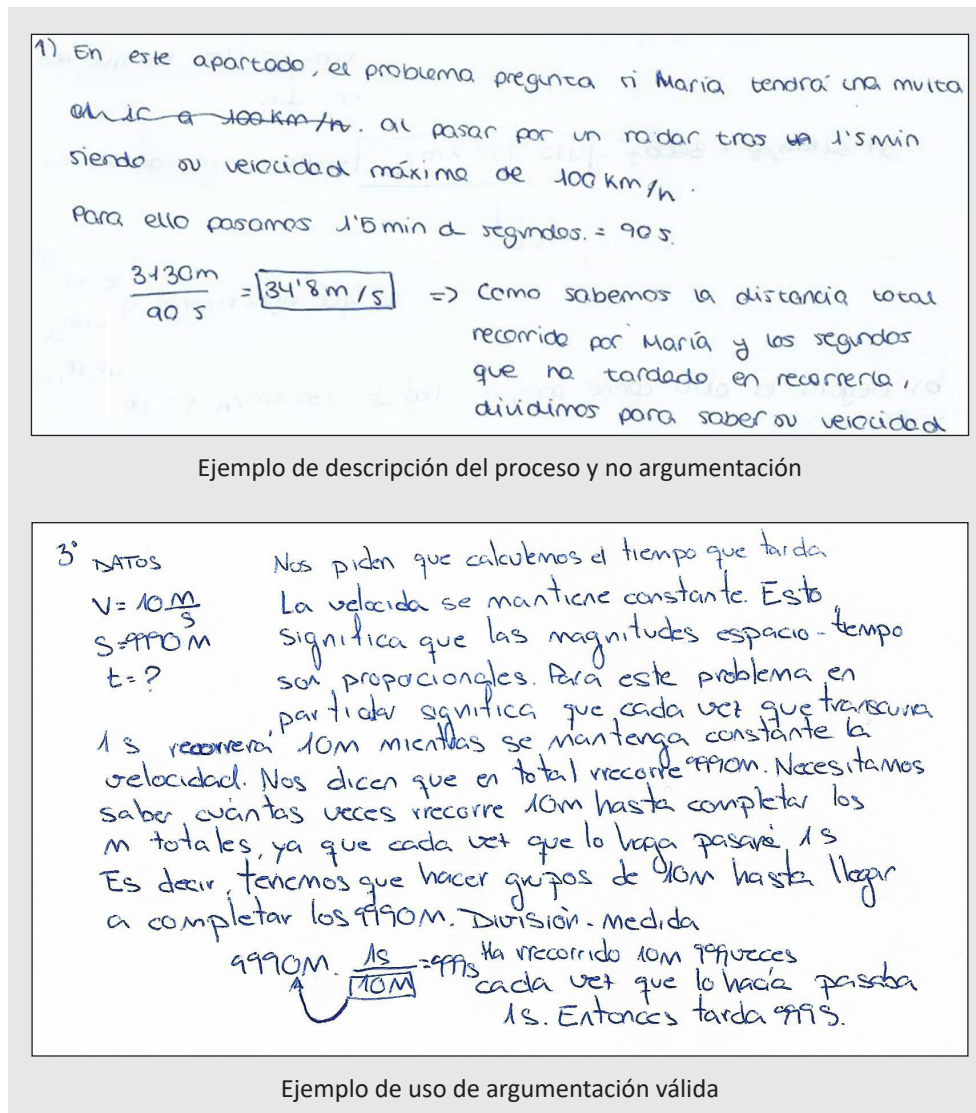 1) En este apartado, el problema pregunta si María tendrá una multa
a 100 km/h. al pasar por un radar tras 1'5 min
siendo su velocidad máxima de 100 km/h.
Para ello pasamos 1'5 min a segundos. = 90 s.
3130m / 90 s = 34'8 m/s => Como sabemos la distancia total
recorrida por María y los segundos
que ha tardado en recorrerla,
dividimos para saber su velocidad
Ejemplo de descripción del proceso y no argumentación
3° DATOS Nos piden que calculemos el tiempo que tarda
V= 10 m/s La velocida se mantiene constante. Esto
S=9990 M significa que las magnitudes espacio-tempo
t=? son propocionales. Para este problema en
particular significa que cada vez que transcurra
1 s recorrerá 10M mientras se mantenga constante la
velocidad. Nos dicen que en total rrecorre 9990M. Necesitamos
saber cuántas veces rrecorre 10m hasta completar los
m totales, ya que cada vez que lo haga pasará 1s
Es decir, tenemos que hacer grupos de 10m hasta llegar
a completar los 9990M. División-medida
9990M. 1s/10M =999s Ha rrecorrido 10m 999veces
cada vez que lo hacía pasaba
1s. Entonces tarda 999s.
Ejemplo de uso de argumentación válida